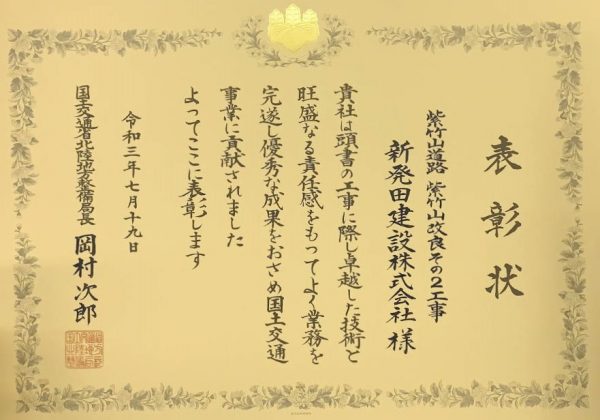 表彰状
紫竹山道路 紫竹山改良その2工事
新発田建設株式会社 様
貴社は頭書の工事に際し卓越した技術と
旺盛なる責任感をもってよく業務を
完遂し優秀な成果をおさめ国土交通
事業に貢献されました
よってここに表彰します
令和三年七月十九日
国土交通省北陸地方整備局長 岡村次郎